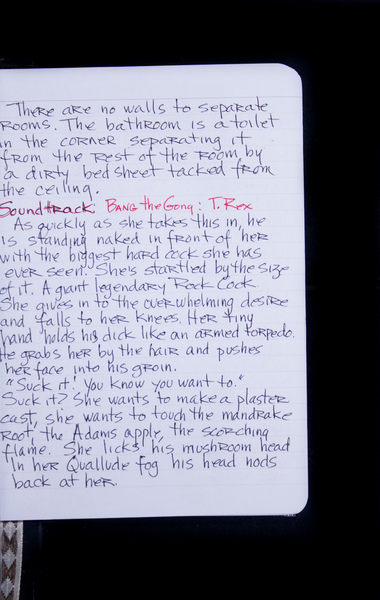 There are no walls to separate
rooms. The bathroom is a toilet
in the corner separating it
from the rest of the room by
a dirty bedsheet tacked from
the ceiling.
Soundtrack: Bang the Gong: T. Rex
As quickly as she takes this in, he
is standing naked in front of her
with the biggest hard cock she has
ever seen. She's startled by the size
of it. A giant legendary Rock Cock.
She gives in to the overwhelming desire
and falls to her knees. Her tiny
hand holds his dick like an armed torpedo.
He grabs her by the hair and pushes
her face into his groin.
"Suck it! You know you want to."
Suck it? She wants to make a plaster
cast, she wants to touch the mandrake
root, the Adams apple, the scorching
flame. She licks his mushroom head
In her Quallude fog his head nods
back at her.